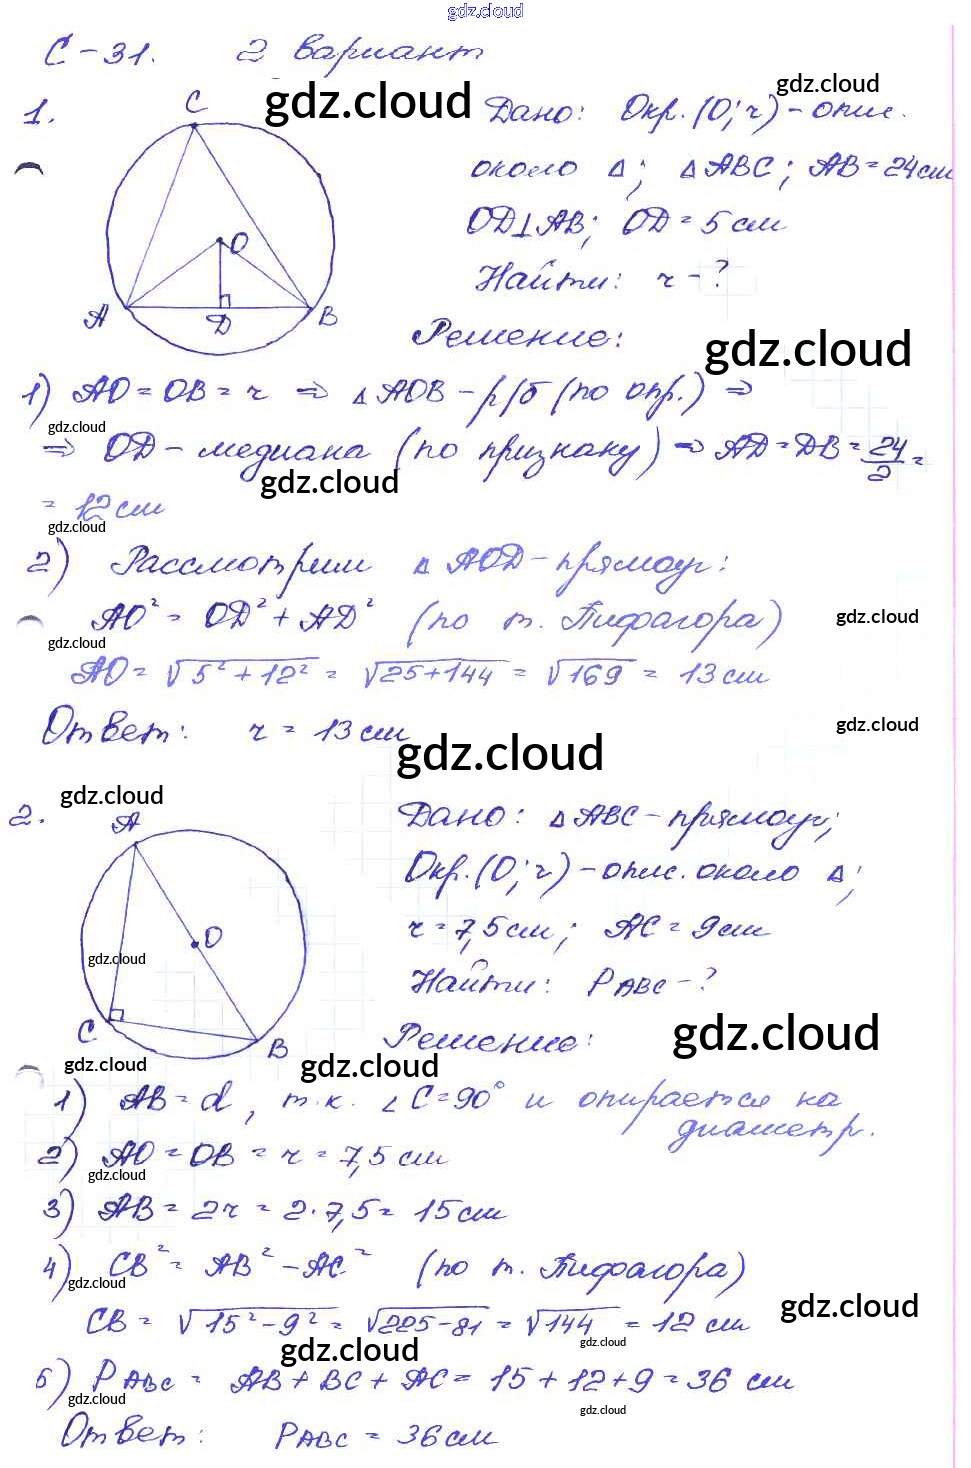 gdz.cloud
С-31. 2 вариант
gdz.cloud
gdz.cloud
1.
C
O
A
D
B
Дано: Окр.(O;r)-опис.
около Δ; ΔABC; AB=24см
OD⊥AB; OD=5см
Найти: r-?
Решение:
gdz.cloud
1) AO=OB=r ⇒ ΔAOB-р/б (по опр.) ⇒
gdz.cloud
⇒ OD-медиана (по признаку) ⇒ AD=DB=24/2=
gdz.cloud
=12см
gdz.cloud
2) Рассмотрим ΔAOD-прямоуг:
AO²=OD²+AD² (по т. Пифагора)
gdz.cloud
gdz.cloud
AO=√5²+12²=√25+144=√169=13см
Ответ: r=13см
gdz.cloud
gdz.cloud
gdz.cloud
2.
A
O
C
B
gdz.cloud
Дано: ΔABC-прямоуг;
Окр.(O;r)-опис.около Δ;
r=7,5см; AC=9см
Найти: PABC-?
Решение:
gdz.cloud
gdz.cloud
gdz.cloud
1) AB=d, т.к. ∠C=90° и опирается на
диаметр.
2) AO=OB=r=7,5см
gdz.cloud
3) AB=2r=2·7,5=15см
4) CB²=AB²-AC² (по т. Пифагора)
gdz.cloud
gdz.cloud
CB=√15²-9²=√225-81=√144=12см
gdz.cloud
gdz.cloud
5) PABC=AB+BC+AC=15+12+9=36см
gdz.cloud
gdz.cloud
Ответ: PABC=36см